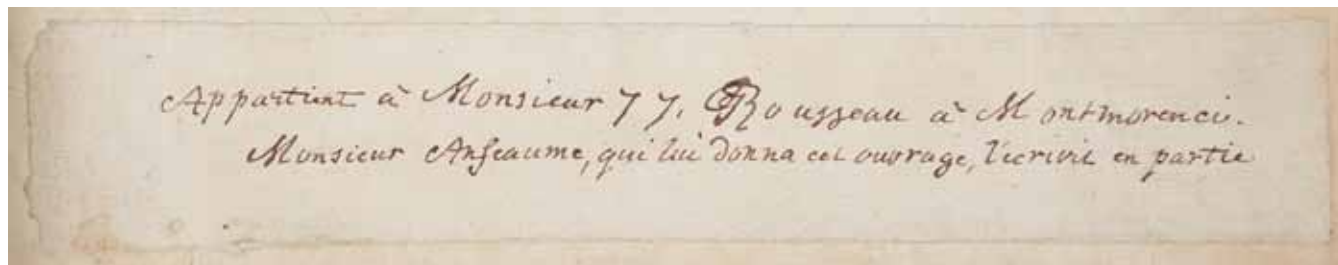 Appartient à Monsieur J J. Rousseau à Montmorenci.
Monsieur Anseaume, qui lui donna cet ouvrage, l'ecrivit en partie